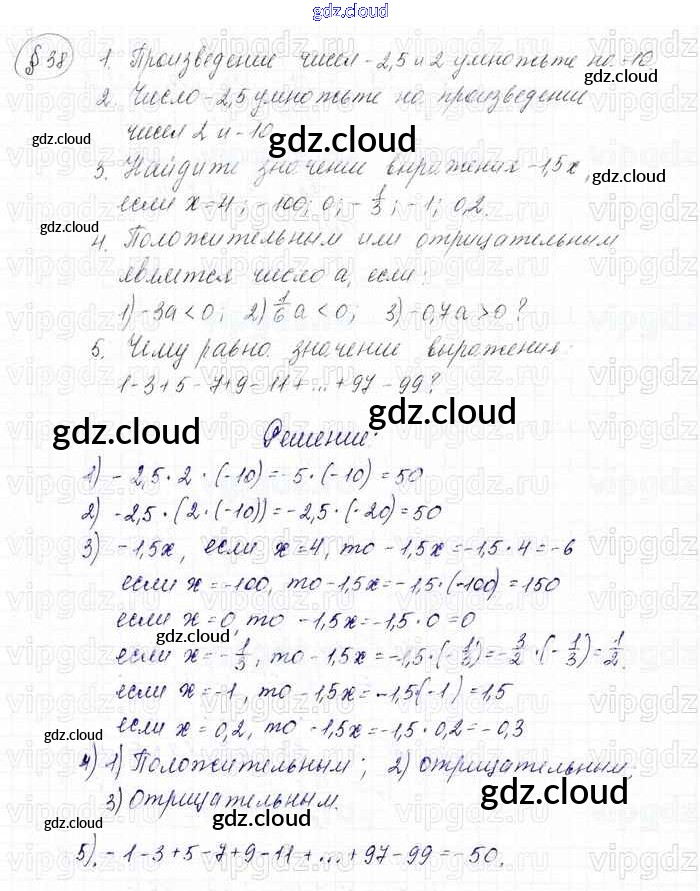 gdz.cloud
§ 38 1. Произведение чисел -2,5 и 2 умножьте на -10
gdz.cloud
2. Число -2,5 умножьте на произведение
чисел 2 и -10.
gdz.cloud
gdz.cloud
3. Найдите значение выражения -1,5x,
gdz.cloud
если x=4; -100; 0; -1/3; -1; 0,2.
gdz.cloud
4. Положительным или отрицательным
является число a, если:
1) -3a < 0; 2) 1/6 a < 0; 3) -0,7a > 0?
5. Чему равно значение выражения:
1-3+5-7+9-11+...+97-99?
gdz.cloud
gdz.cloud
Решение:
1) -2,5·2·(-10)=-5·(-10)=50
2) -2,5·(2·(-10))=-2,5·(-20)=50
3) -1,5x, если x=4, то -1,5x=-1,5·4=-6
если x=-100, то -1,5x=-1,5·(-100)=150
если x=0, то -1,5x=-1,5·0=0
gdz.cloud
если x=-1/3, то -1,5x=-1,5·(-1/3)=-3/2·(-1/3)=1/2.
если x=-1, то -1,5x=-1,5(-1)=1,5
если x=0,2, то -1,5x=-1,5·0,2=-0,3
gdz.cloud
4) 1) Положительным; 2) отрицательным;
3) Отрицательным.
gdz.cloud
5) -1-3+5-7+9-11+...+97-99=-50.
gdz.cloud
gdz.cloud